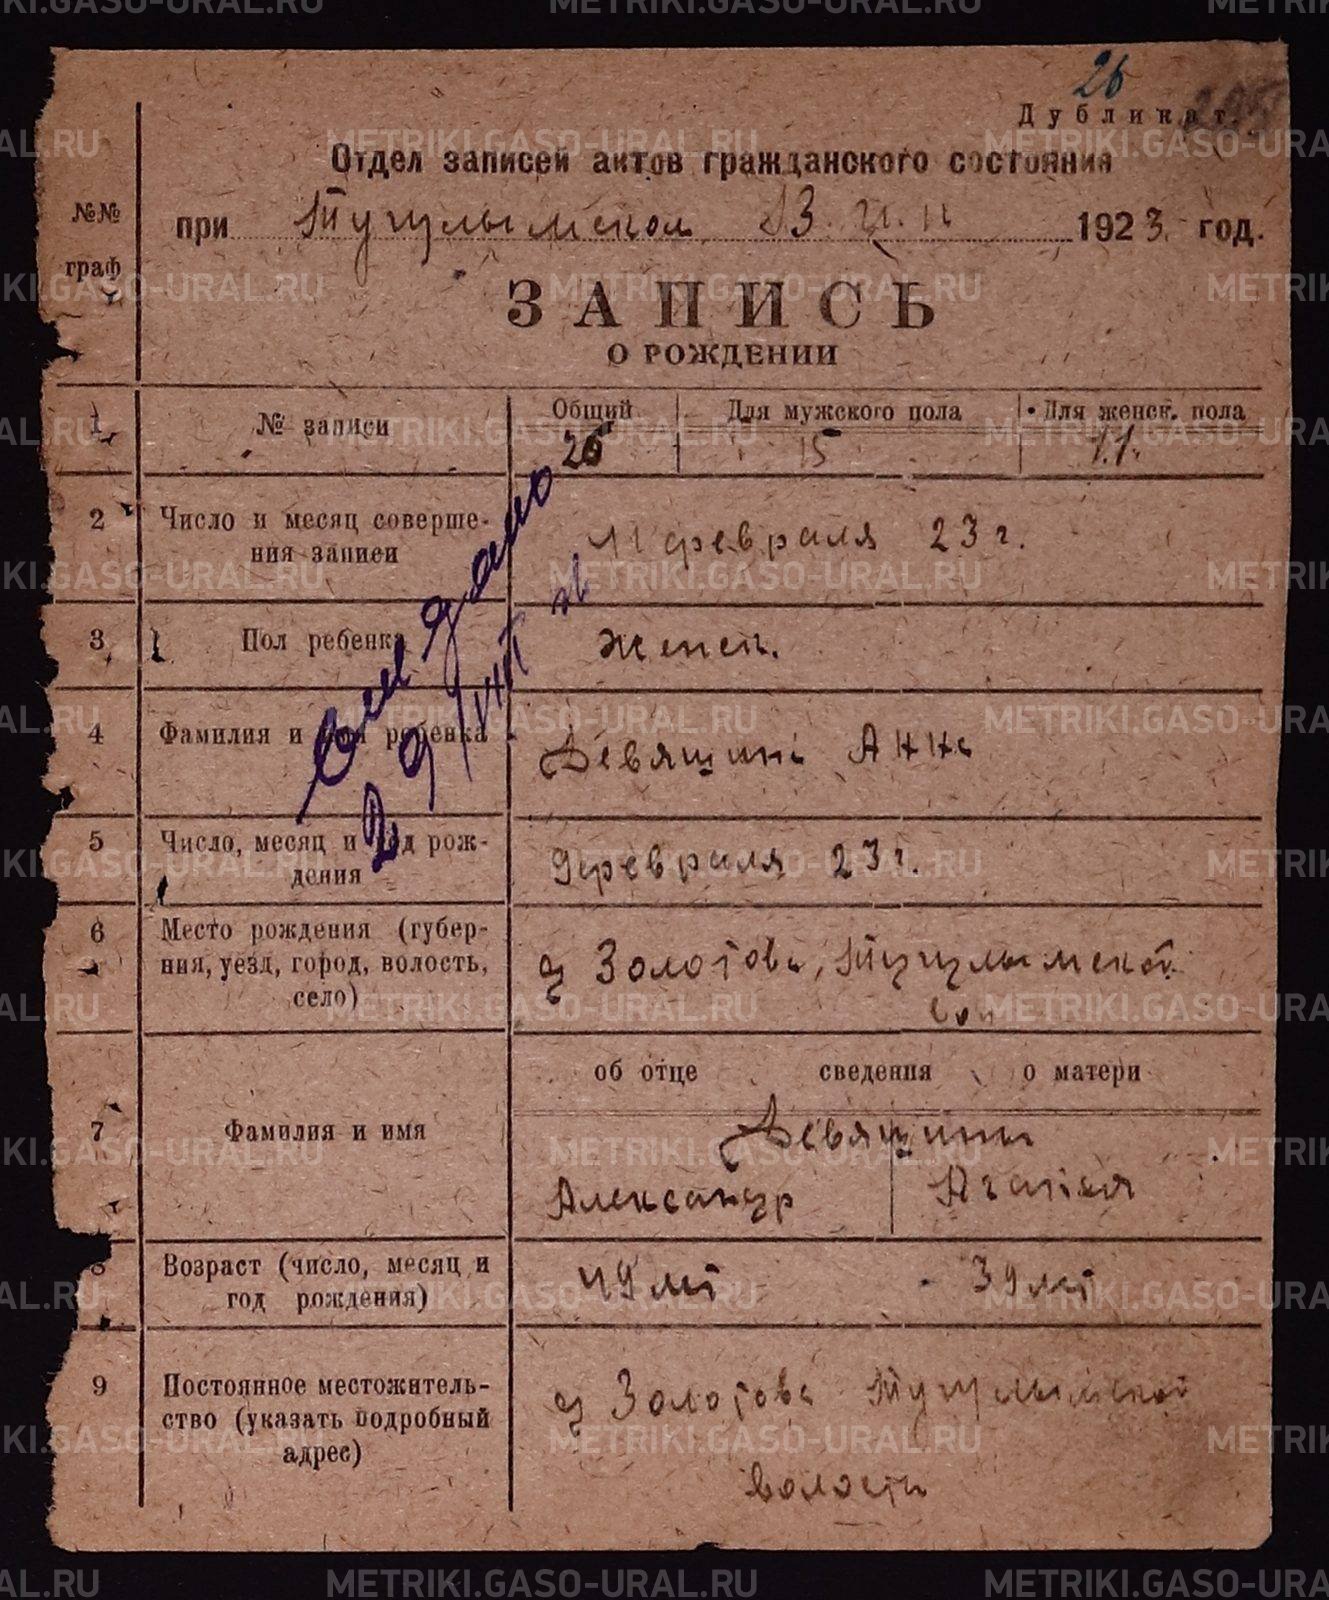 26
Дубликат.
Отдел записей актов гражданского состояния
№№ граф
при Тугулымском В.И.К 1923 год.
ЗАПИСЬ
О РОЖДЕНИИ
1 № записи Общий Для мужского пола Для женск. пола
26 15 11
2 Число и месяц соверше-
ния записи
11 февраля 23 г.
3 Пол ребенка Женск.
4 Фамилия и имя ребенка Девяшина Анна
5 Число, месяц и год рож-
дения
9 февраля 23 г.
6 Место рождения (губер-
ния, уезд, город, волость,
село)
д Золотова, Тугулымской
вол
об отце сведения о матери
7 Фамилия и имя
Девяшины
Александр Агапия
8 Возраст (число, месяц и
год рождения)
49 лет 39 лет
9 Постоянное местожитель-
ство (указать подробный
адрес)
д Золотова Тугулымской
волости
дано
29/VIII
METRIKI.GASO-URAL.RU